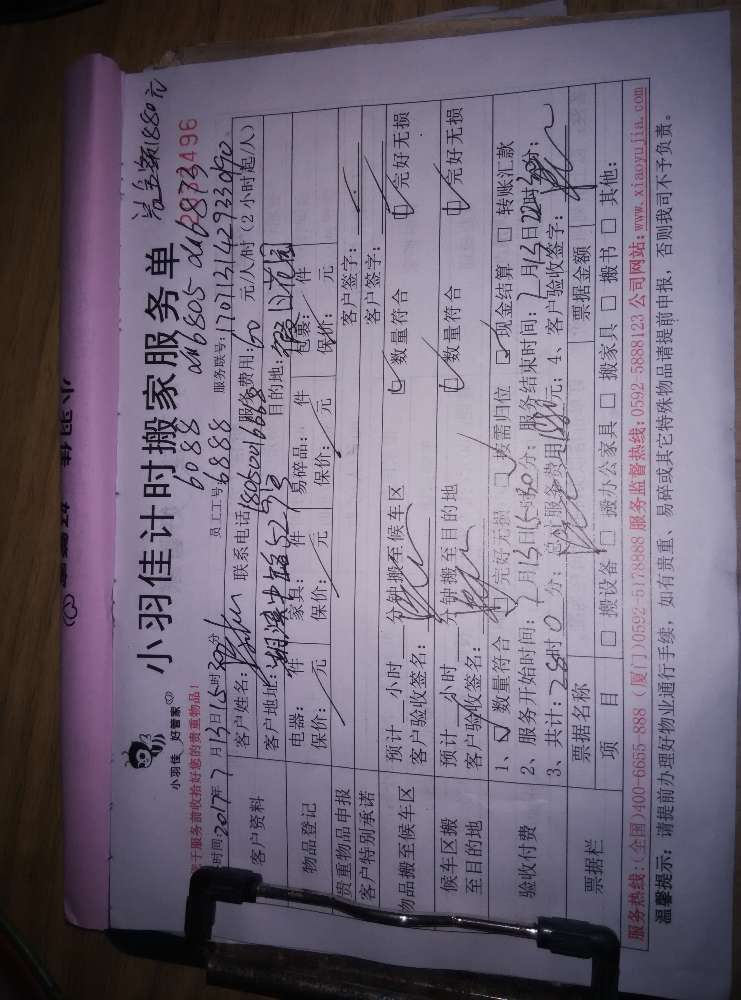 洽金额1880元
2033496
小羽佳计时搬家服务单
小羽佳 好管家
6088 6805 6873
于服务前收拾好您的贵重物品!
员工工号: 6888
服务联号: 17071314293090
时间: 2017年7月13日15时30分
客户资料
客户姓名: 联系电话: 18050016668 服务费用: 60 元/人/时(2小时起/人)
客户地址: 湖滨中路529号 目的地: 假日花园
物品登记
电器: 件 家具: 件 易碎品: 件 包裹: 件
保价: 元 保价: 元 保价: 元 保价: 元
贵重物品申报 客户签字:
客户特别承诺 客户签字:
物品搬至候车区
预计 小时 分钟搬至候车区 数量符合 完好无损
客户验收签名:
候车区搬至目的地
预计 小时 分钟搬至目的地 数量符合 完好无损
客户验收签名:
验收付费
1、数量符合 完好无损 按需归位 现金结算 转账汇款
2、服务开始时间: 7月13日15时30分; 服务结束时间: 7月13日22时30分;
3、共计: 28时0分; 总计服务费用1680元; 4、客户验收签字:
票据栏
票据名称 票据金额
项目 搬设备 搬办公家具 搬家具 搬书 其他:
服务热线:(全国)400-6655-888 (厦门)0592-5178888 服务监督热线:0592-5888123 公司网站:www.xiaoyujia.com
温馨提示: 请提前办理好物业通行手续,如有贵重、易碎或其它特殊物品请提前申报,否则我司不予负责。